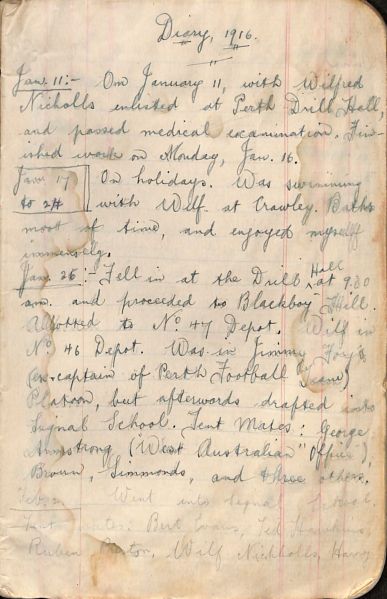 Diary, 1916.
Jan. 11:- On January 11, with Wilfred
Nicholls enlisted at Perth Drill Hall,
and passed medical examination. Fin-
ished work on Monday, Jan. 16.
Jan. 17 On holidays. Was swimming
to 24 with Wilf at Crawley Baths
most of time, and enjoyed myself
immensely.
Jan. 26:- Fell in at the Drill Hall at 9.30
am. and proceeded to Blackboy Hill.
Allotted to No. 47 Depot. Wilf in
No. 46 Depot. Was in Jimmy Foy's
(ex-captain of Perth Football Team)
Platoon, but afterwards drafted into
Signal School. Tent Mates: George
Armstrong ("West Australian" Office),
Brown, Simmonds, and three others.
Went into Signal School
Tent mates: Bert Evans, Ted Hawkins,
Ruben Wilf Nicholls, Harry